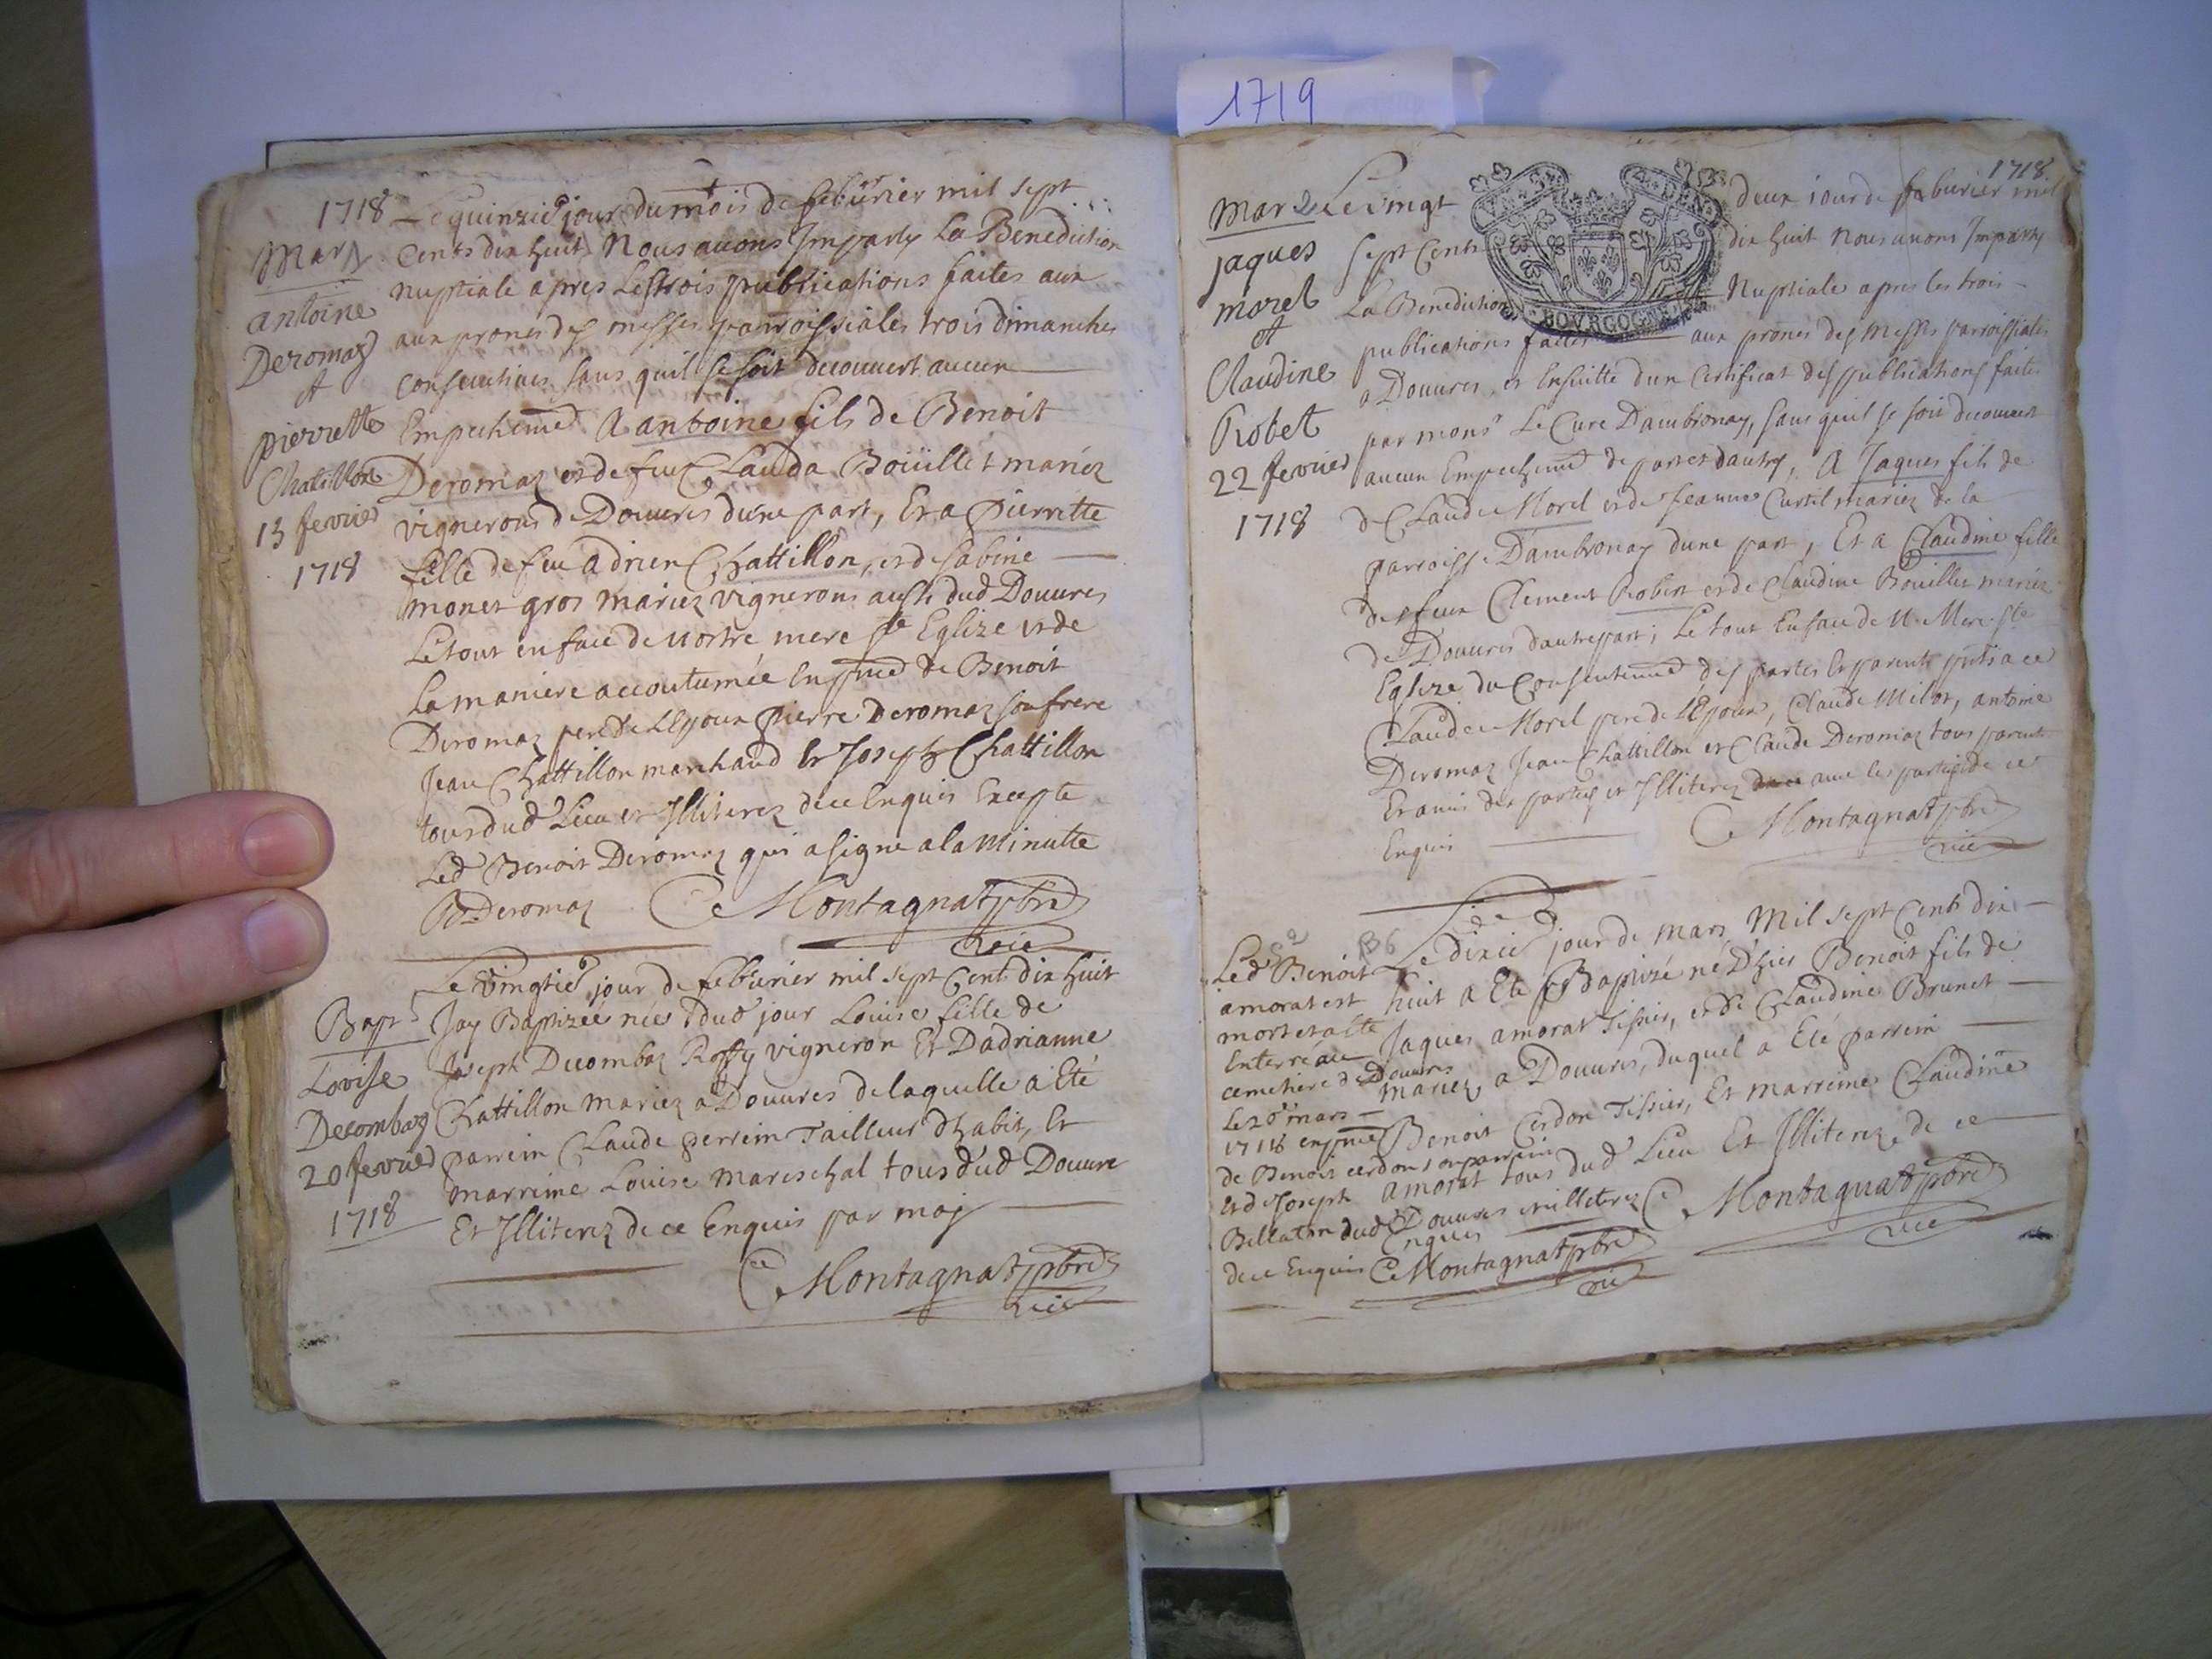 1719
1718
Le quinzie jour du mois de feburier mil sept
cents dix huit Nous auons Imparty La Benediction
nuptiale apres Les trois publications faites aux
aux prones des messes parroissiales trois dimanches
consecutives sans quil se soit decouuert aucun
Empechemt A antoine fils de Benoit
Deromaz et de feue Clauda Boüillet mariez
vignerons de Douures d'une part, Et a Pierrette
fille de feu adrien Chattillon, et de sabine
monet gros mariez vignerons aussi dud Douures
Le tout en face de nostre mere ste Eglize et de
La maniere accoutumée En pnce de Benoit
Deromaz pere de L'Epoux Pierre Deromaz son frere
Jean Chattillon marchand et Joseph Chattillon
tous dud Lieu et Illiterez de ce Enquis Excepte
Led Benoit Deromaz qui a signe a la Minutte
B Deromaz C Montagnat pbre
vice
Mary
antoine
Deromaz
et
pierrette
Chatillon
15 fevrier
1718
Le vingtie jour de feburier mil sept Cent dix huit
Jay Baptizée née dud jour Louise fille de
Joseph Decombaz Roffy vigneron Et Dadrianne
Chattillon mariez a Douures de laquelle a Eté
parrein Claude perrein Tailleur d'habit, Et
marreine Louise mareschal tous dud Douure
Et Illiterez de ce Enquis par moy
C Montagnat pbre
vice
Bapt
Lovise
Decombaz
20 fevrier
1718
1718
Le vingt deux iour de feburier mil
sept Cents dix huit Nous auons Imparty
La Benediction Nuptiale apres les trois
publications faites aux prones des Messes parroissiales
a Douures, et Ensuitte d'un Certificat des publications faites
par monsr Le Cure Dambronay, sans quil se soit decouuert
aucun Empechemt de part et dautre, A Jaques fils de
de Claude Morel et de Jeanne Curtil mariez de la
parroisse Dambronay dune part, Et a Claudine fille
des feux Clement Robert et de Claudine Bouillet mariez
de Douures dautre part; Le tout En face de N. Mere Ste
Eglize du Consentemt des parties Et parents pnts a ce
Claude Morel pere de L'Epoux, Claude Milor, antoine
Deromaz Jean Chattillon et Claude Deromaz tous parents
Et amis des parties et Illiterez auec les parties de ce
Enquis C Montagnat pbre
vice
Mar
jaques
morel
et
Claudine
Robet
22 fevrier
1718
BOVRGOGNE
Le dixie jour de mars Mil sept Cents dix
huit a Ete Baptizé né D'hier Benoit fils de
Jaques amorat Tissier, et de Claudine Brunet
mariez a Douures, duquel a Eté parrein
Benoit Cerdon Tissier, Et marreine Claudine
amorat tous dud Lieu Et Illiterez de ce
Enquis C Montagnat pbre
vice
Led Benoit
amorat est
mort et a ete
Enterré au
cemetiere de Douures
le 26 mars
1718 en pnce
de Benoit cerdon son parrein
Et de Joseph
Bellaton dud Douures et illeterez
de ce Enquis C Montagnat pbre
vice